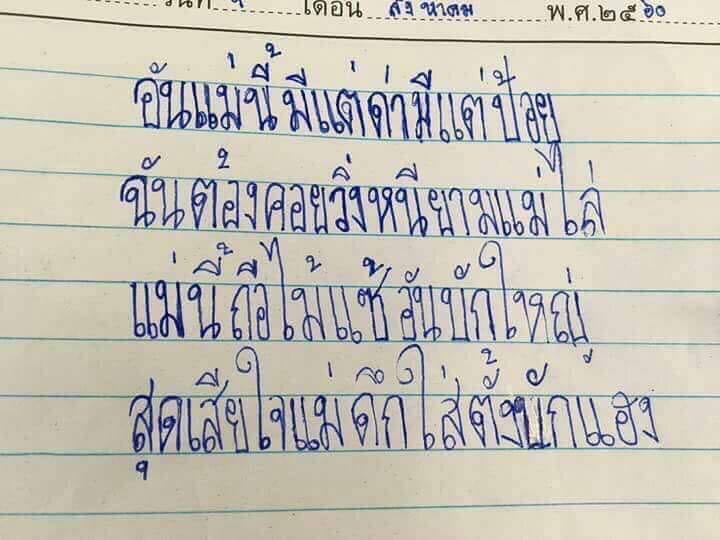 วันที่ ๆ เดือน สิงหาคม พ.ศ.๒๕๖๐
อันแม่นี้มีแต่ด่ามีแต่ป้อย
ฉันต้องคอยวิ่งหนียามแม่ไล่
แม่นี้ถือไม้แซ้อันบักใหญ่
สุดเสียใจแม่ดึกใส่ตั้งบักแฮง